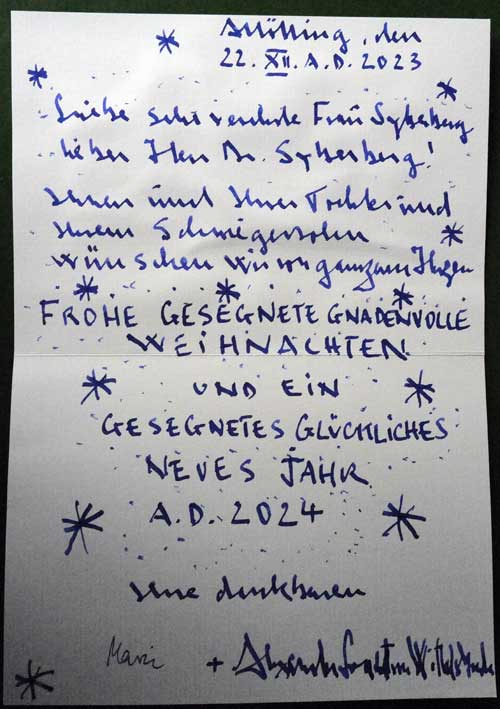 Altötting, den
22. XII. A.D. 2023
Liebe sehr verehrte Frau Syberberg
lieber Herr Dr. Syberberg!
Ihnen und Ihrer Tochter und
Ihrem Schwiegersohn
wünschen wir von ganzem Herzen
FROHE GESEGNETE GNADENVOLLE
WEIHNACHTEN
UND EIN
GESEGNETES GLÜCKLICHES
NEUES JAHR
A.D. 2024
Ihre dankbaren
+